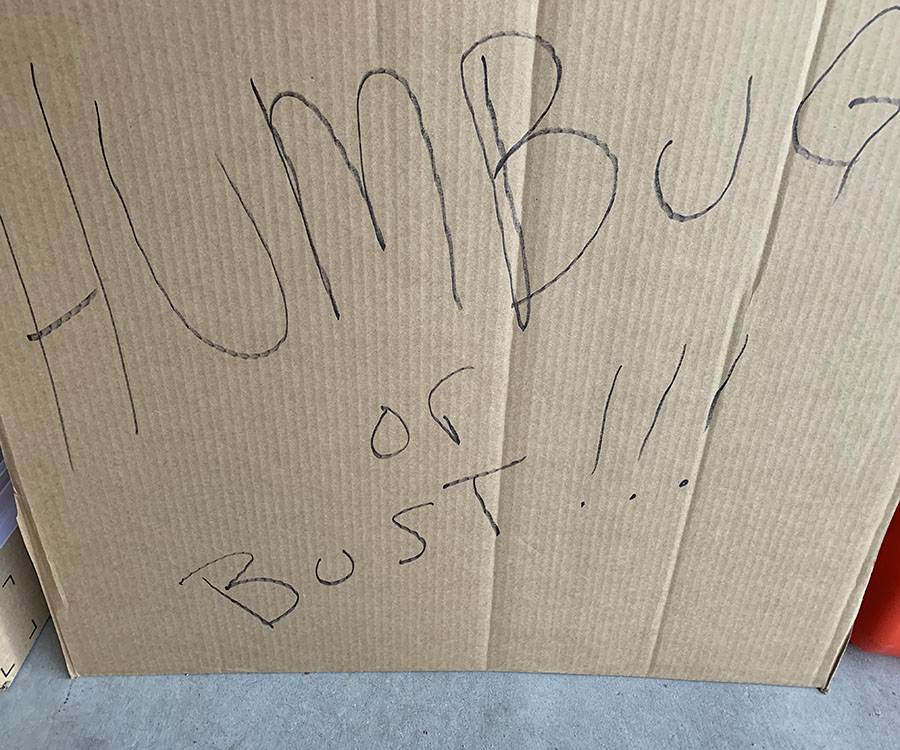 HUMBUG
or
BUST!!!